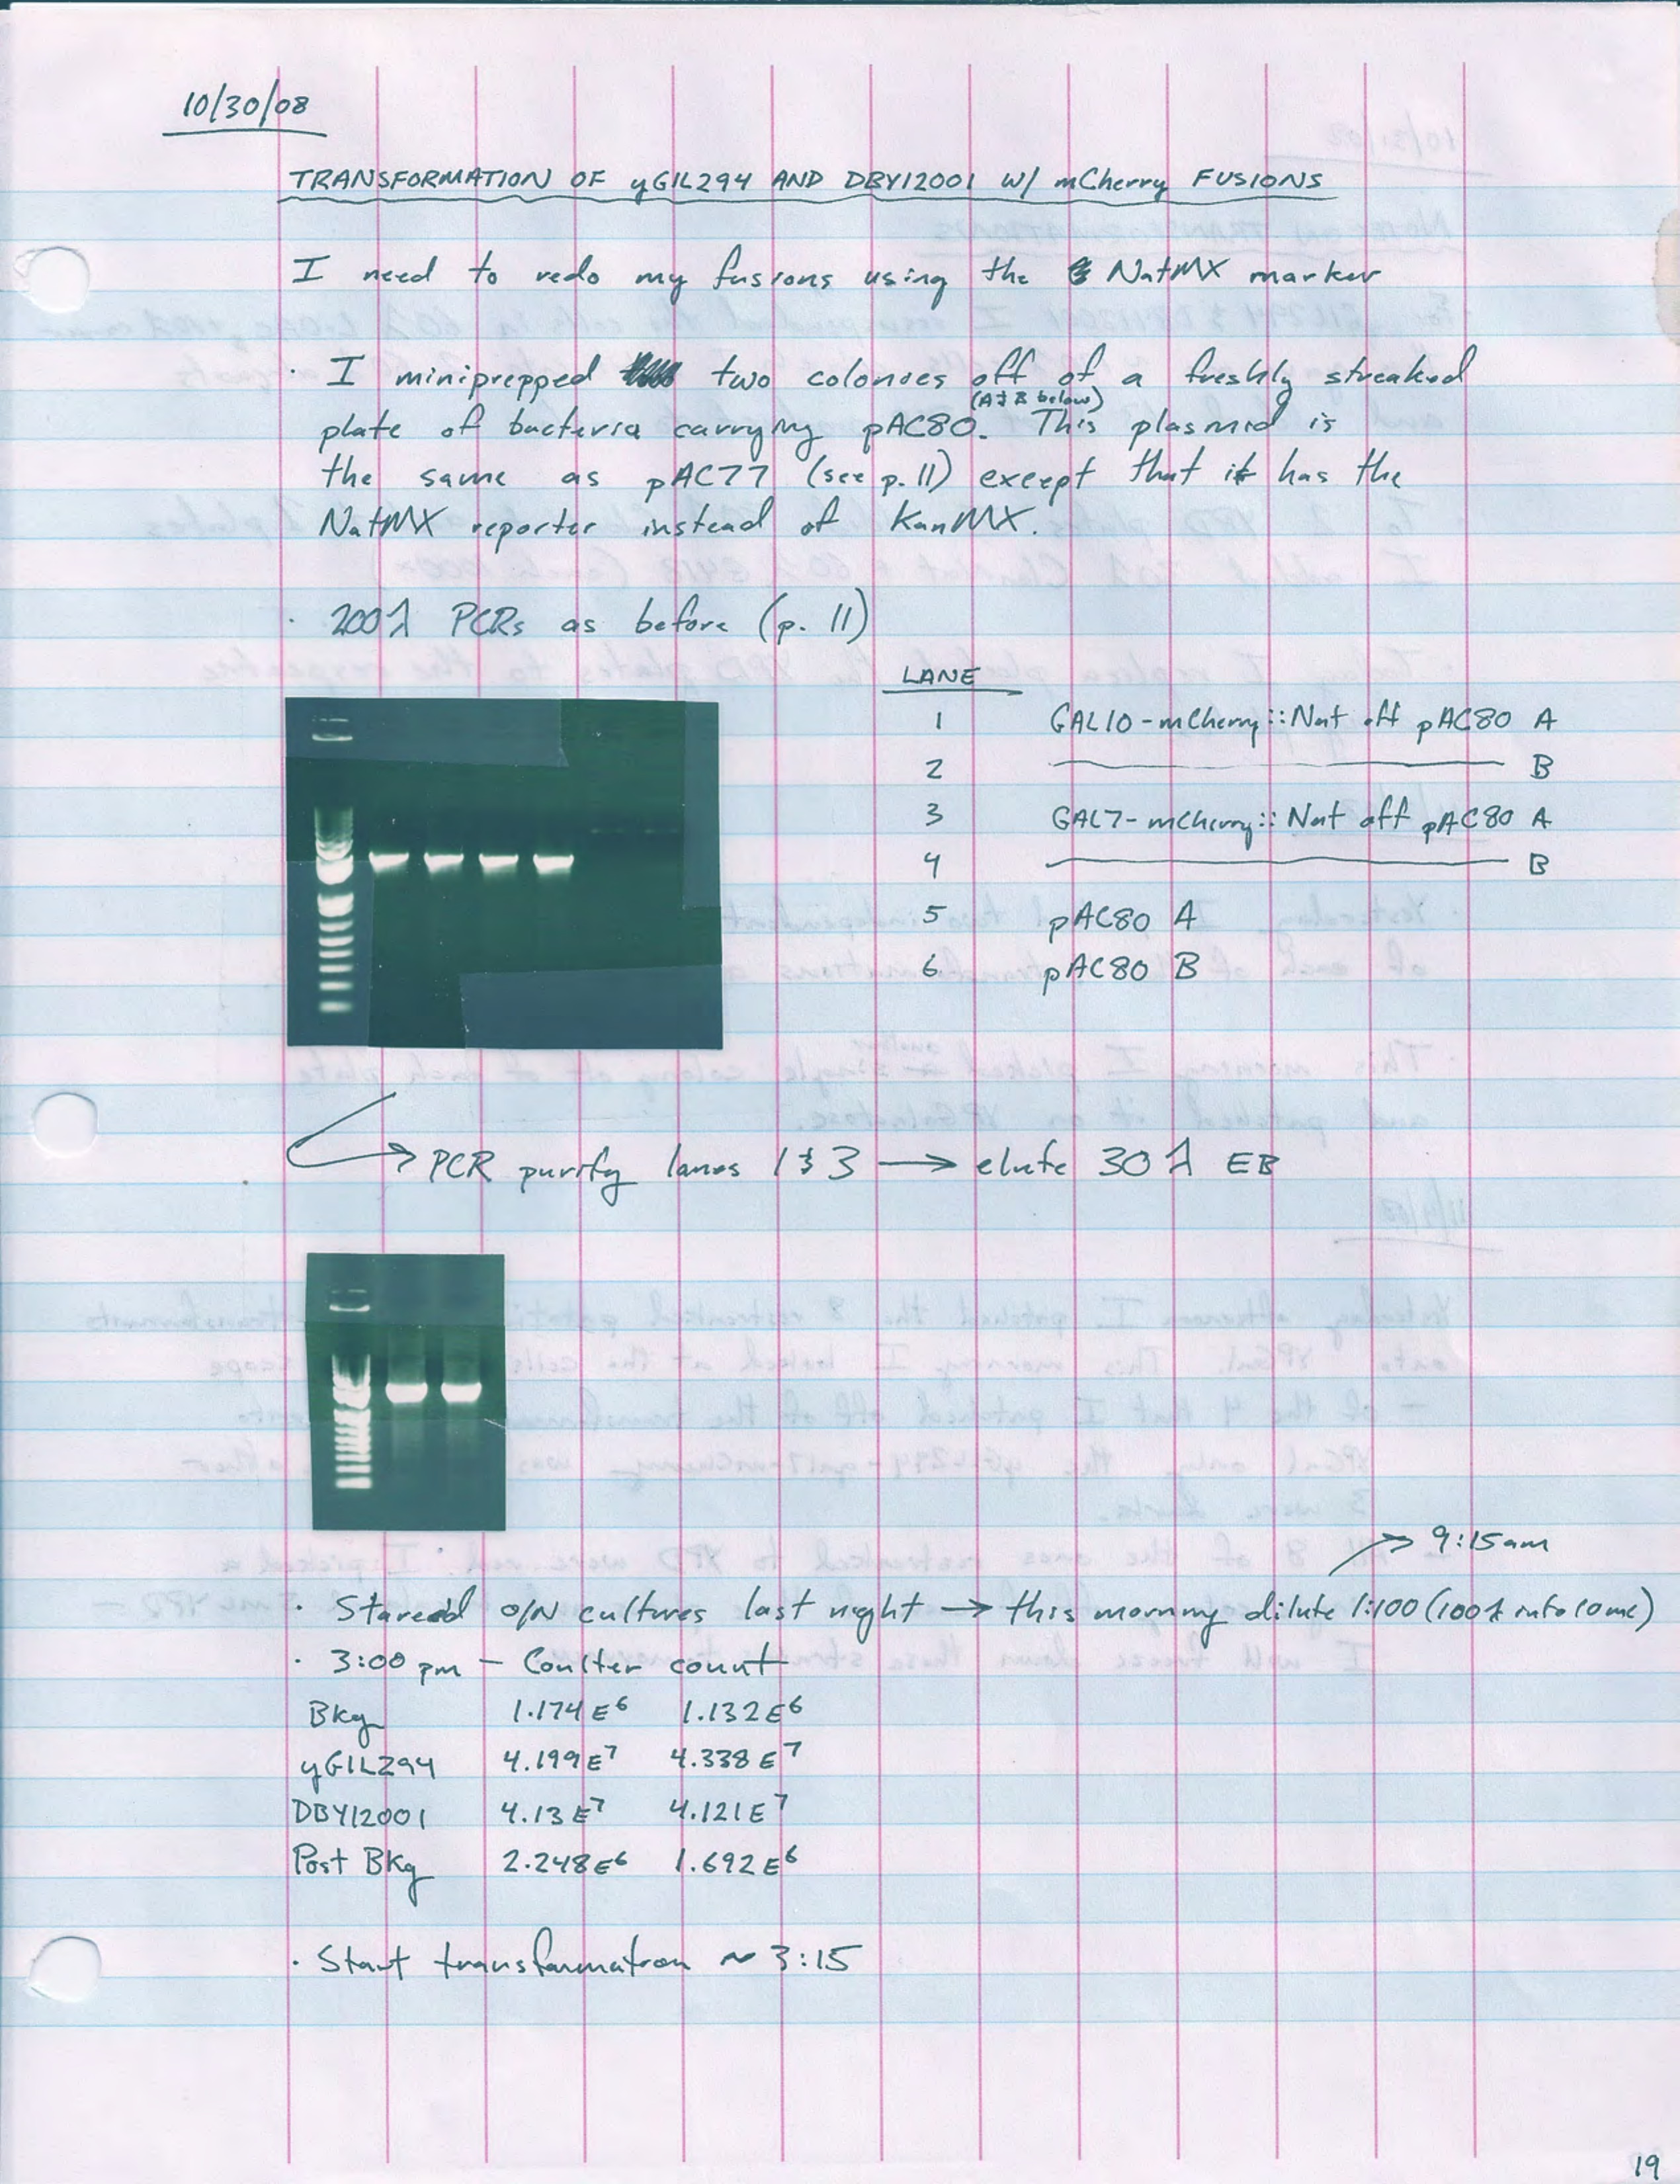 10/30/08
TRANSFORMATION OF yGIL294 AND DBY12001 W/ mCherry FUSIONS
I need to redo my fusions using the NatMX marker
· I miniprepped two colonies off of a freshly streaked
(A & B below)
plate of bacteria carrying pAC80. This plasmid is
the same as pAC77 (see p. 11) except that it has the
NatMX reporter instead of KanMX.
· 200λ PCRs as before (p. 11)
LANE
1 GAL10-mCherry::Nat off pAC80 A
2 ———— B
3 GAL7-mCherry::Nat off pAC80 A
4 ———— B
5 pAC80 A
6 pAC80 B
→ PCR purify lanes 1 & 3 → elute 30λ EB
→ 9:15am
· Stareed O/N cultures last night → this morning dilute 1:100 (100λ into 10mL)
· 3:00 pm – Coulter count
Bkg 1.174E6 1.132E6
yGIL294 4.199E7 4.338E7
DBY12001 4.13E7 4.121E7
Post Bkg 2.248E6 1.692E6
· Start transformation ~ 3:15
19